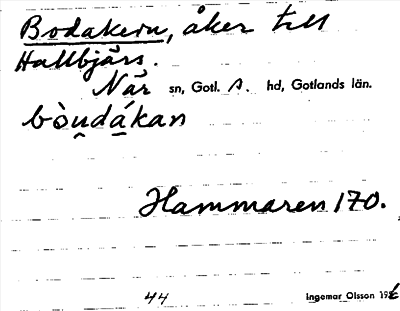 Bodakern, åker till
Hallbjärs.
När sn, Gotl. A. hd, Gotlands län.
bòu̯dákan
Hammaren 170.
44
Ingemar Olsson 19